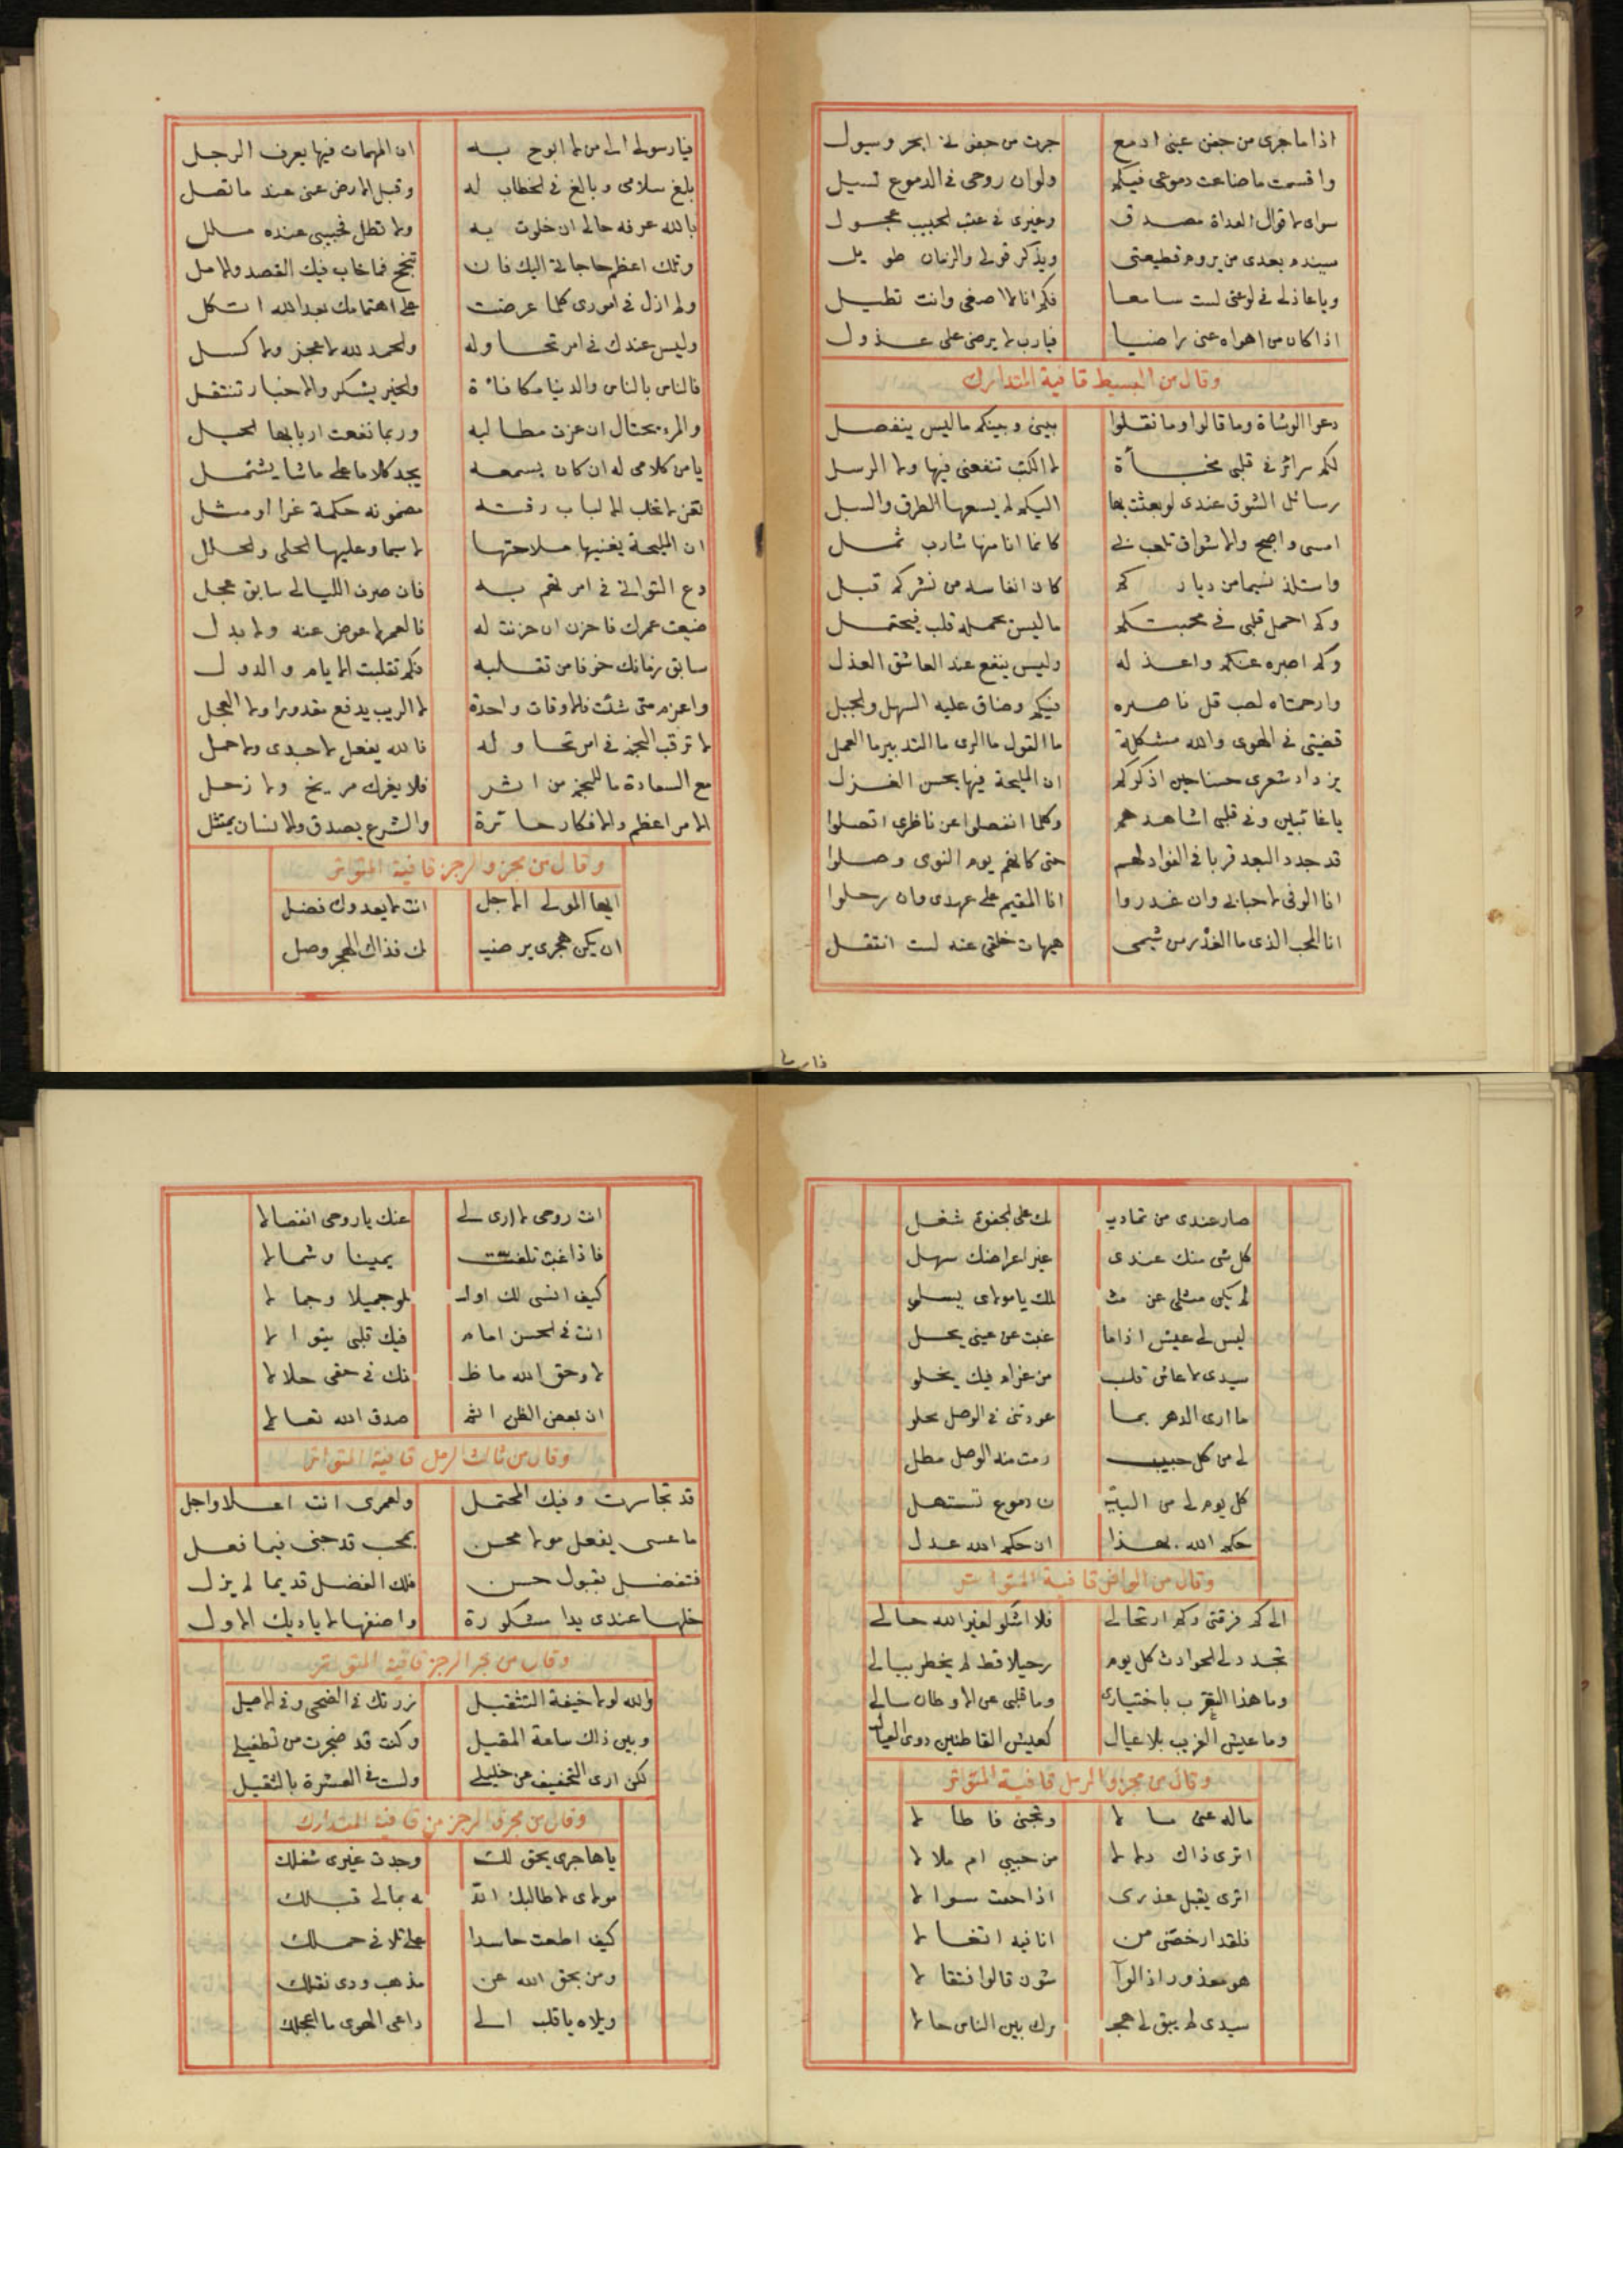 اذا ما جرى من جفن عينى ادمع جرت من جفنى لى ابحر وسيول
واقسمت ما ضاعت دموعى فيكم ولو ان روحى فى الدموع تسيل
سواى لاقوال العداة مصدق وغيرى فى عتب الحبيب عجول
سيندم بعدى من يروم قطيعتى ويذكر قولى والزمان طويل
وياعاذلى فى لوعتى لست سامعا فكم انا لا اصغى وانت تطيل
اذا كان من اهواه عنى راضيا فيارب لا يرضى على عذول
وقال من البسيط قافية المتدارك
دعوا الوشاة وما قالوا وما نقلوا بينى وبينكم ما ليس ينفصل
لكم سرائر فى قلبى مخبأة لا الكتب تنفعنى فيها ولا الرسل
رسائل الشوق عندى لو بعثت بها اليكم لم يسعها الطرق والسبل
امسى واصبح والاشواق تلعب بى كانما انا منها شارب ثمل
واستلذ نسيما من دياركم كان انفاسه من نشركم قبل
وكم احمل قلبى فى محبتكم ما ليس يحمله قلب فيحتمل
وكم اصبره عنكم واعذله وليس ينفع عند العاشق العذل
وارحمتاه لصب قل ناصره فيكم وضاق عليه السهل والجبل
قضيتى فى الهوى والله مشكلة ما القول ما الرى ما التدبير ما العمل
يزداد شعرى حسنا حين اذكركم ان المليحة فيها يحسن الغزل
ياغائبين وفى قلبى اشاهدهم وكلما انفصلوا عن ناظرى اتصلوا
قد جدد البعد قربا فى الفواد لهم حتى كانهم يوم النوى وصلوا
انا الوفى لاحبابى وان غدروا انا المقيم على عهدى وان رحلوا
انا المحب الذى ما الغدر من شيمى هيهات خلقى عنه لست انتقل
فيارسولى الى من لا ابوح به ان المهمات فيها يعرف الرجل
بلغ سلامى وبالغ فى الخطاب له وقبل الارض عنى عند ما تصل
بالله عرفه حالى ان خلوت به ولا تطل فحبيبى عنده ملل
وتلك اعظم حاجاتى اليك فان تنجح فما خاب فيك القصد والامل
ولم ازل فى امورى كلما عرضت على اهتمامك بعد الله اتكل
وليس عندك فى امر تحاوله والحمد لله لا عجز ولا كسل
فالناس بالناس والدنيا مكافاة والخير يشكر والاخبار تنتقل
والمرء يحتال ان عزت مطالبه وربما نفعت اربابها الحيل
يامن كلامى له ان كان يسمعه يجد كلاما على ما شا يشتمل
تغزل تخلب الالباب رقته مضمونه حكمة غرا او مثل
ان المليحة يغنيها ملاحتها لا سيما وعليها الحلى والحلل
دع التوانى فى امر تهم به فان صرف الليالى سابق عجل
ضيعت عمرك فاحزن ان حزنت له فالعمر لا عوض عنه ولا بدل
سابق زمانك خوفا من تقلبه فكم تقلبت الايام والدول
واعزم متى شئت فالاوقات واحدة لا الريب يدفع مقدورا ولا العجل
لا ترقب النجم فى امر تحاوله فالله يفعل لا جدى ولا حمل
مع السعادة ما للنجم من اثر فلا يغرك مريخ ولا زحل
الامر اعظم والافكار حائرة والشرع يصدق والانسان يمتثل
وقال من مجزو الرجز قافية المتواتر
ايها المولى الاجل انت لا يعدوك فضل
ان يكن هجرى يرضيـ ـك فذاك الهجر وصل
فارسل
صار عندى من تماديـ ـك على الجفوة شغل
كل شى منك عندى غير اعراضك سهل
لم يكن مثلى عن مثـ ـلك يامولاى يسلو
ليس لى عيش اذا ما غبت عن عينى يحل
سيدى لا عاش قلب من غرام فيك يخلو
ما ارى الدهر بما عودتنى فى الوصل يحلو
لى من كل حبيب رمت منه الوصل مطل
كل يوم لى من البيـ ـن دموع تستهل
حكم الله بهذا ان حكم الله عدل
وقال من الوافر قافية المتواتر
الى كم فرقتى وكم ارتحالى فلا اشكو لغير الله حالى
تجدد لى الحوادث كل يوم رحيلا قط لم يخطر ببالى
وما هذا التغرب باختيارى وما قلبى عن الاوطان سالى
وما عيش الغريب بلا عيال كعيش القاطنين ذوى العيال
وقال من مجزو الرمل قافية المتواتر
ماله عنى مالا وتجنى فاطالا
اترى ذاك دلالا من حبيبى ام ملالا
اترى يقبل عذرى اذا حمت سوالا
فلقد ارخصنى من انا فيه اتغالا
هو معذور اذا لوا شون قالوا فتقالا
سيدى لم يبق لى هجـ ـرك بين الناس حالا
انت روحى لا ارى لى عنك ياروحى انفصالا
فاذا غبت تلفت يمينا وشمالا
كيف انسى لك اولـ ـو جميلا وجمالا
انت فى الحسن امام فيك قلبى يتوالا
لا وحق الله ما ظـ ـنك فى حقى حلالا
ان بعض الظن اثم صدق الله تعالى
وقال من ثالث الرمل قافية المتواتر
قد تجاسرت وفيك المحتمل ولعمرى انت اعلا واجل
ما عسى يفعل مولا محسن بمحب قد جنى فيما فعل
فتفضل بقبول حسن فلك الفضل قديما لم يزل
خلها عندى يدا مشكورة واضفها لاياديك الاول
وقال من بحر الرجز قافية المتواتر
والله لولا خيفة التثقيل زرتك فى الضحى وفى الاصيل
وبين ذاك ساعة المقيل وكنت قد ضجرت من تطفيلى
لكن ارى التخفيف عن خليلى ولست فى العشرة بالثقيل
وقال من مجزو الرجز من قافية المتدارك
ياهاجرى يحق لك وجدت غيرى شغلك
مولاى لا طالبك اللـ ـه بما لى قبلك
كيف اطعت حاسدا على تلافى حملك
ومن بحق الله عن مذهب ودى نقلك
ويلاه ياقلب الى داعى الهوى ما اعجلك